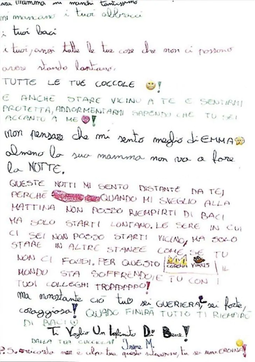 mamma mi manchi tantissimo
mi mancano i tuoi abbracci
i tuoi baci
e tutte le tue cose che non ci possono
stando lontane.
TUTTE LE TUE COCCOLE
E ANCHE STARE VICINI A TE E SENTIRMI
PROTETTA, ADDORMENTARMI SAPENDO CHE TU SEI
ACCANTO A ME
non pensare che mi sento meglio di EMMA
almeno la sua mamma non va a fare
la NOTTE.
QUESTE NOTTI MI SENTO DISTANTE DA TE
PERCHÉ QUANDO MI SVEGLIO ALLA
MATTINA NON POSSO RIEMPIRTI DI BACI
MA SOLO STARTI LONTANO, LE SERE IN CUI
CI SEI NON POSSO STARTI VICINO, MA SOLO
STARE IN ALTRE STANZE COME SE TU
NON CI FOSSI. PER QUESTO CORONA VIRUS IL
MONDO STA SOFFRENDO E TU CON I
TUOI COLLEGHI TROPPO
ma nonostante ciò tu sei GUERRIERA, sei forte,
coraggiosa! QUANDO FINIRÀ TUTTO TI
DI BACI
Ti Voglio Un Di Bene!
DALLA TUA
P.S.